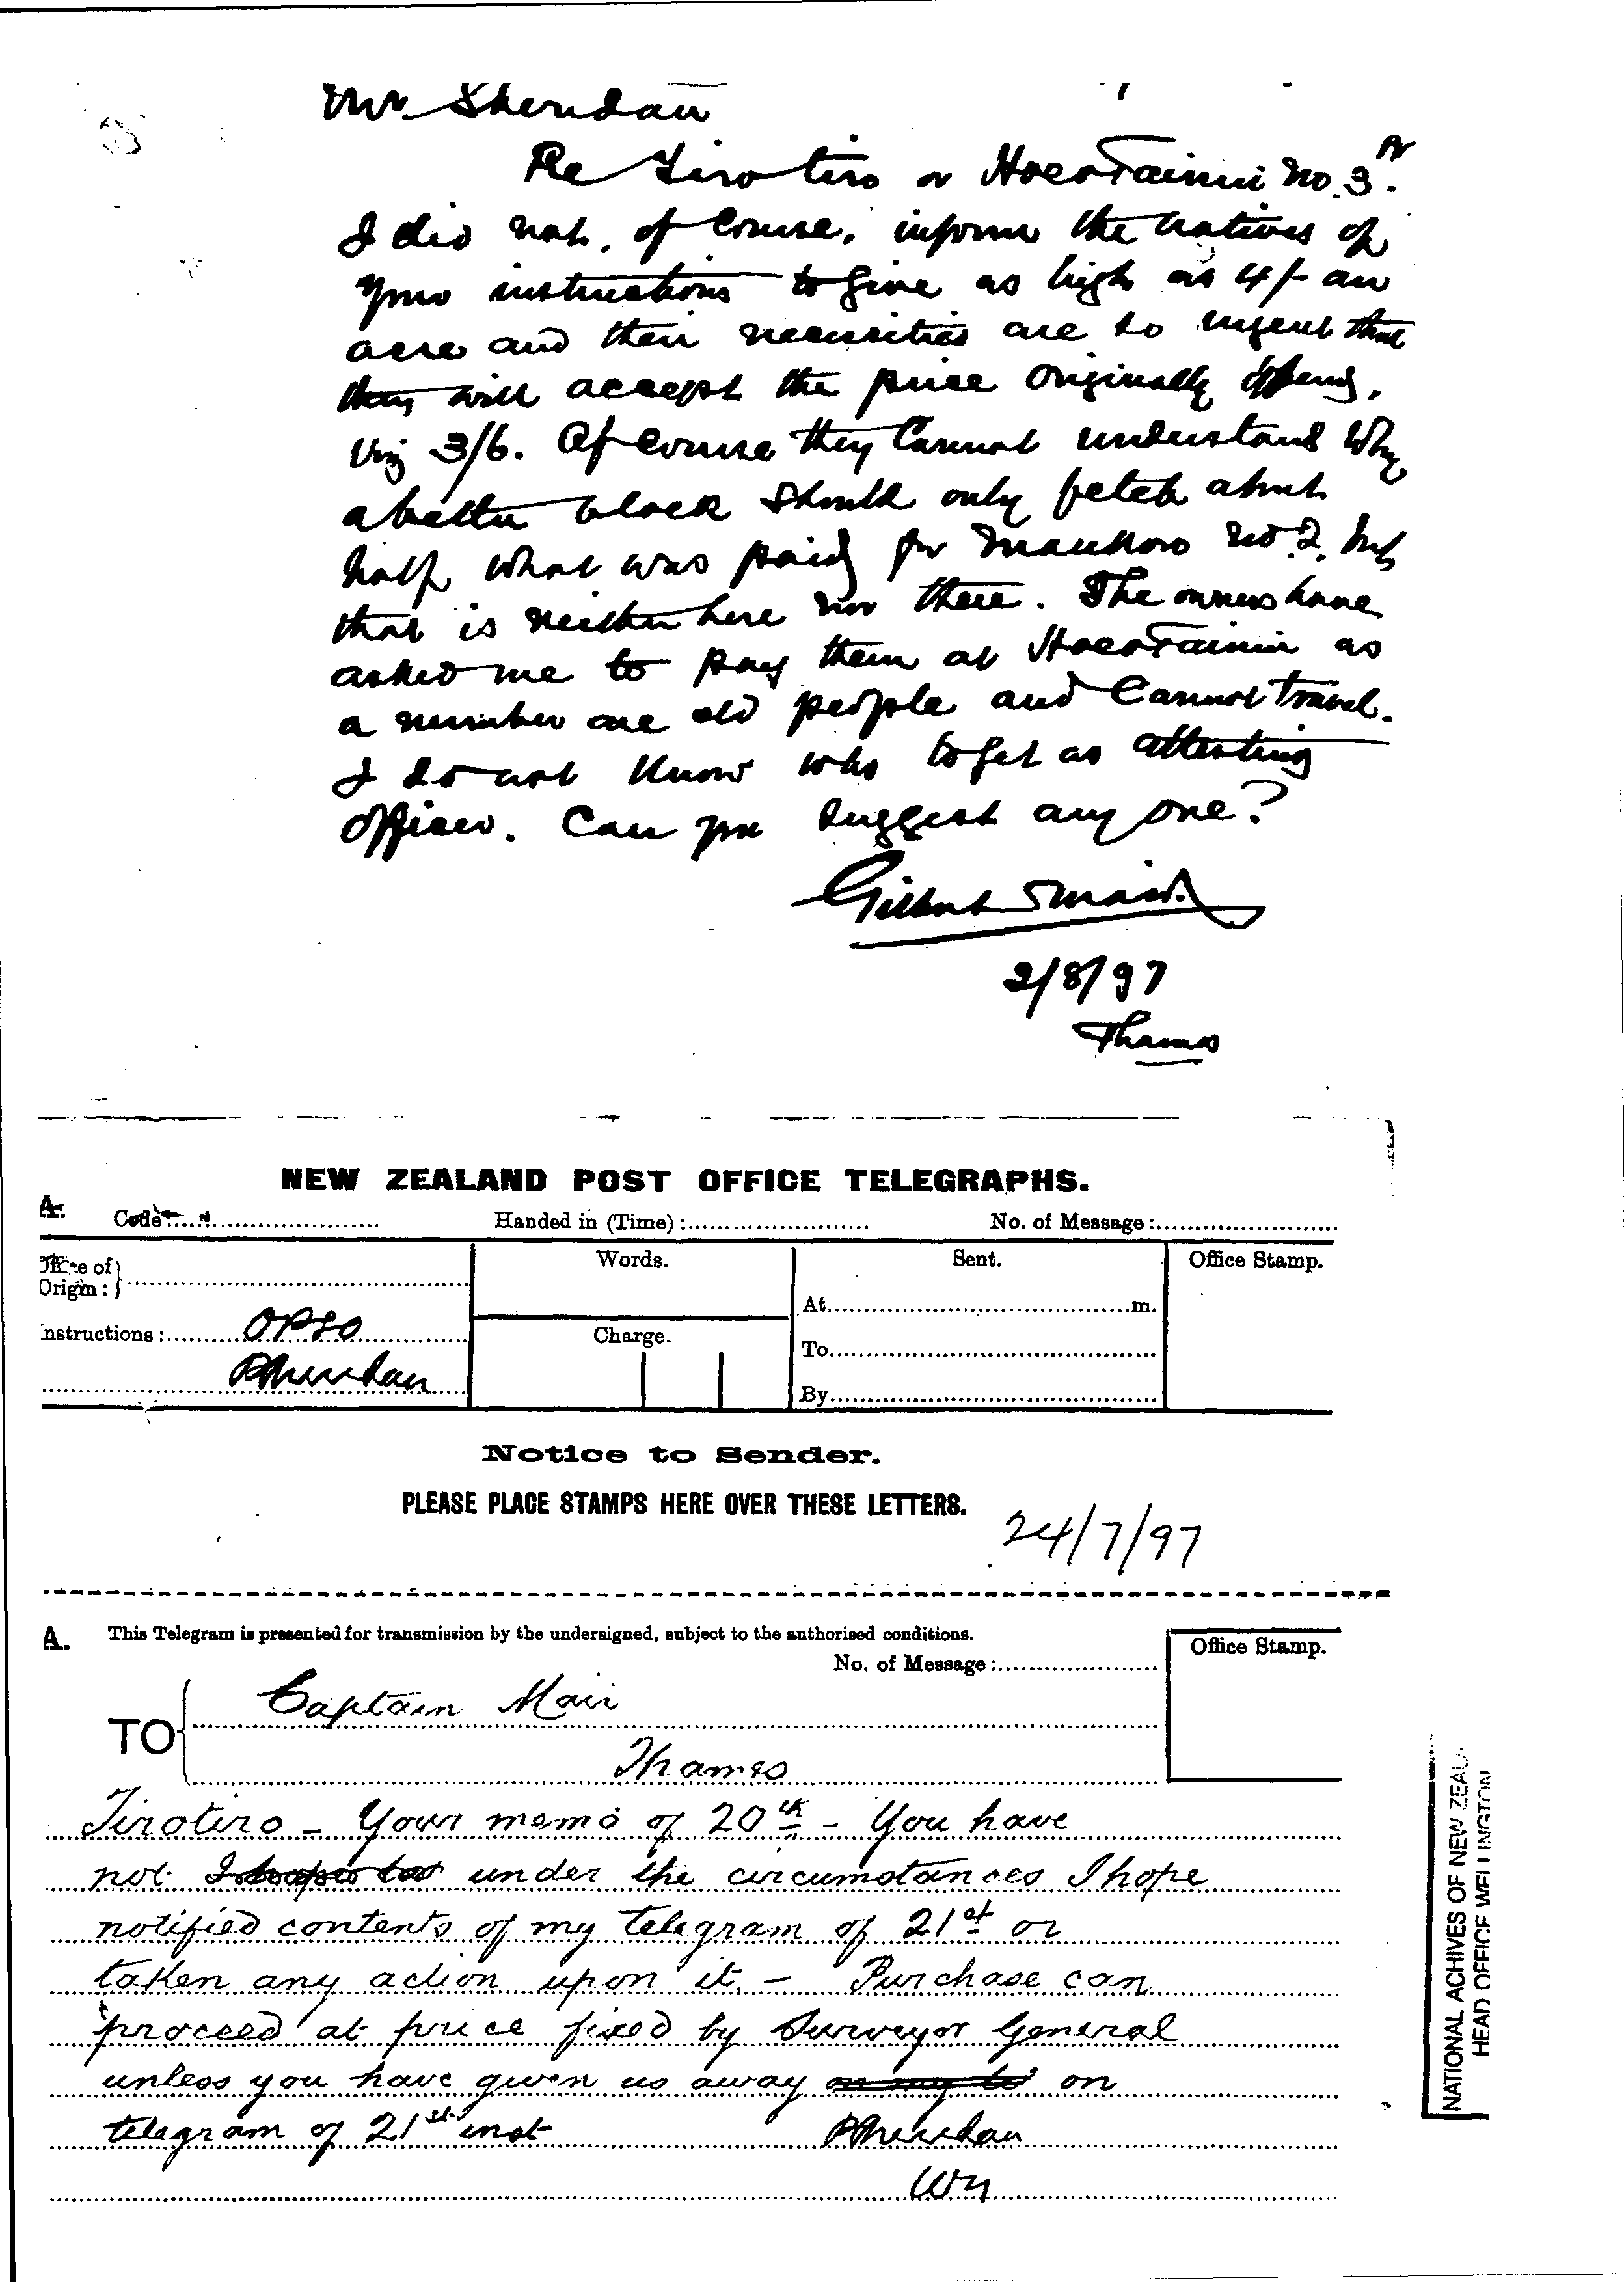 Mr. Sheridan
Re Tirotiro or Hoeotainui No. 3
I did not, of course, inform the natives of
your instructions to give as high as 4/- an
acre and their necessities are so urgent that
they will accept the price originally offered,
viz 3/6. Of course they cannot understand why
a better block should only fetch about
half what was paid for Maukoro No 2, but
that is neither here nor there. The owners have
asked me to pay them at Hoeotainui as
a number are old people and cannot travel.
I do not know who to get as attesting
officer. Can you suggest any one?
Gilbert Mair
2/8/97
Thames
NEW ZEALAND POST OFFICE TELEGRAPHS.
A. Code: Handed in (Time): No. of Message:
of Origin: Words. Sent. Office Stamp.
At m.
nstructions: OPSO Charge. To
PSheridan By
Notice to Sender.
PLEASE PLACE STAMPS HERE OVER THESE LETTERS.
24/7/97
A. This Telegram is presented for transmission by the undersigned, subject to the authorised conditions.
No. of Message: Office Stamp.
TO Captain Mair
Thames
Tirotiro – Your memo of 20th – You have
not under the circumstances I hope
notified contents of my telegram of 21st or
taken any action upon it. – Purchase can
proceed at price fixed by Surveyor General
unless you have given us away on
telegram of 21st inst PSheridan
Wn
NATIONAL ARCHIVES OF NEW ZEAL
HEAD OFFICE WELLINGTON